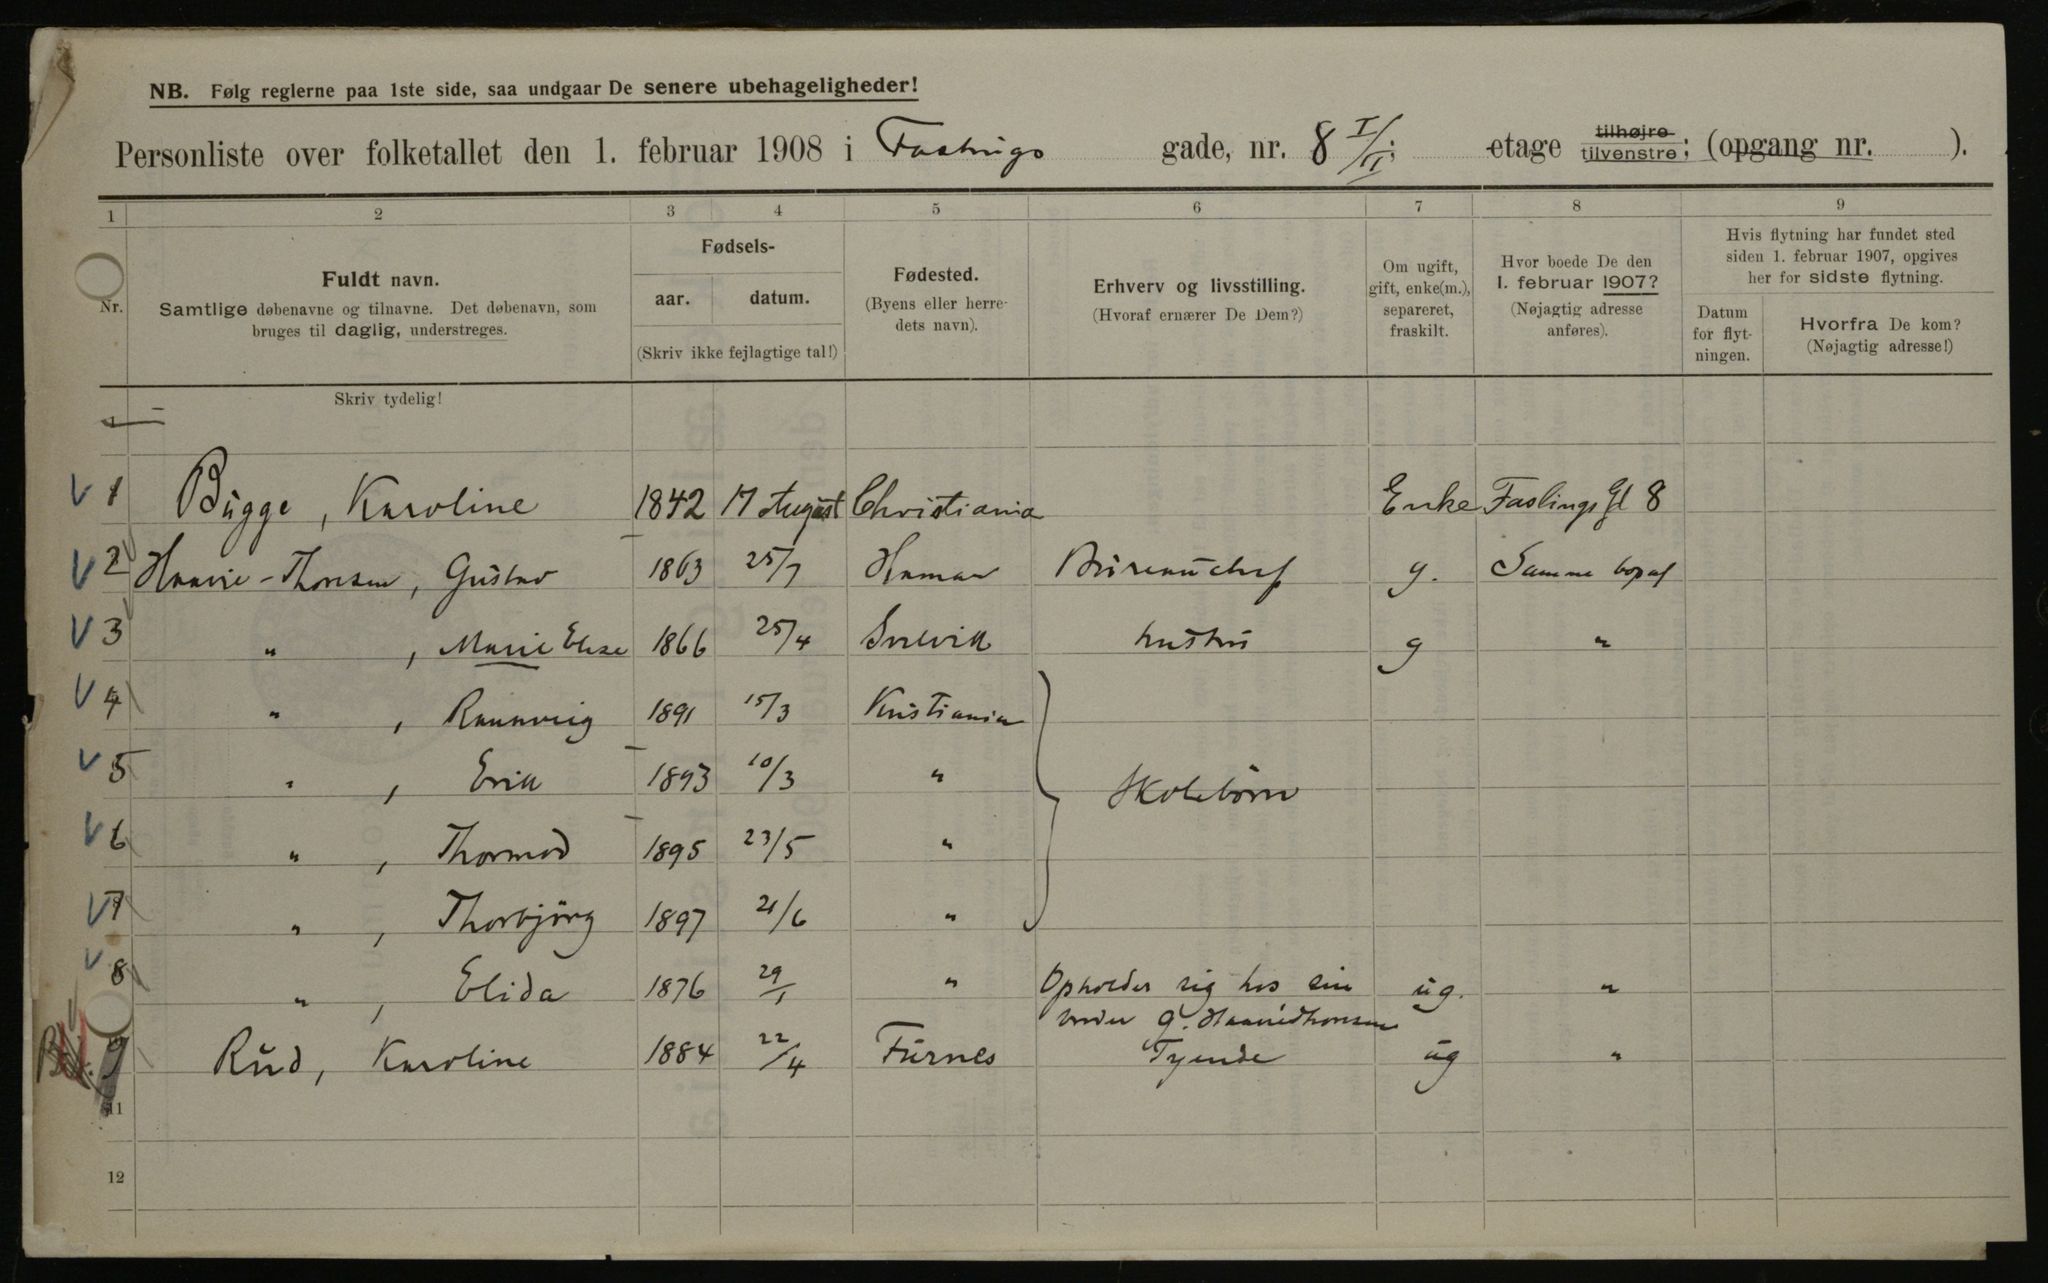 NB. Følg reglerne paa 1ste side, saa undgaar De senere ubehageligheder!
Personliste over folketallet den 1. februar 1908 i Faslings gade, nr. 8 I/II etage tilhøjre tilvenstre; (opgang nr. ).
1 2 3 4 5 6 7 8 9
Nr.
Fuldt navn.
Samtlige døbenavne og tilnavne. Det døbenavn, som
bruges til daglig, understreges.
Skriv tydelig!
Fødsels-
aar. datum.
(Skriv ikke fejlagtige tal!)
Fødested.
(Byens eller herre-
dets navn).
Erhverv og livsstilling.
(Hvoraf ernærer De Dem?)
Om ugift,
gift, enke(m.),
separeret,
fraskilt.
Hvor boede De den
1. februar 1907?
(Nøjagtig adresse
anføres).
Hvis flytning har fundet sted
siden 1. februar 1907, opgives
her for sidste flytning.
Datum
for flyt-
ningen.
Hvorfra De kom?
(Nøjagtig adresse!)
1 Bugge, Karoline 1842 17 August Christiania Enke Faslings Gd 8
2 Haavie-Thoresen, Gustav 1863 25/7 Hamar Bureauchef g. Samme bopæl
3 " , Marie Elise 1866 25/4 Svelvik hustru g "
4 " , Rannveig 1891 15/3 Kristiania
5 " , Erik 1893 10/3 "
Skolebørn
6 " , Thormod 1895 23/5 "
7 " , Thorbjörg 1897 21/6 "
8 " , Elida 1876 29/1 " Opholder sig hos sin ug. "
broder G. Haavie Thoresen
9 Rud, Karoline 1884 22/4 Furnes Tyende ug "
11
12